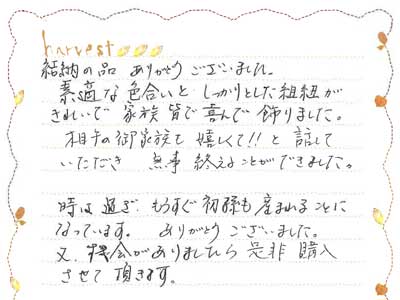 harvest
結納の品 ありがとう ございました。
素適な 色合いと しっかりとした 組紐が
きれいで 家族 皆で 喜んで 飾りました。
相手の御家族も 嬉しくて!! と 話して
いただき 無事 終えることが できました。
時は 過ぎ もうすぐ 初孫も 産まれることに
なっています。 ありがとう ございました。
又、機会が ありましたら 是非 購入
させて 頂きます。